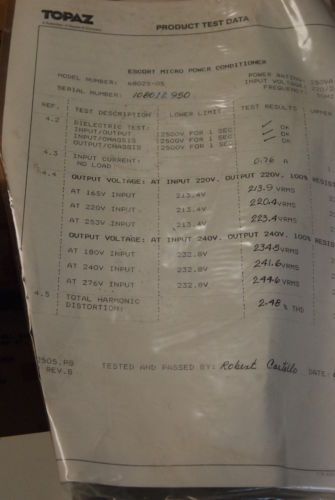 TOPAZ
PRODUCT TEST DATA
ESCORT MICRO POWER CONDITIONER
MODEL NUMBER: 68025-05 POWER RATING: 250VA
SERIAL NUMBER: 1080/2 950 INPUT VOLTAGE: 220/2
FREQUENCY: 50HZ
REF. TEST DESCRIPTION LOWER LIMIT TEST RESULTS UPPER
4.2 DIELECTRIC TEST:
INPUT/OUTPUT 2500V FOR 1 SEC ✓ OK
INPUT/CHASSIS 2500V FOR 1 SEC ✓ OK
OUTPUT/CHASSIS 2500V FOR 1 SEC ✓ OK
4.3 INPUT CURRENT:
NO LOAD 0.76 A
4.4 OUTPUT VOLTAGE: AT INPUT 220V, OUTPUT 220V, 100% RESIS
AT 165V INPUT 213.4V 213.9 VRMS
AT 220V INPUT 213.4V 220.4 VRMS
AT 253V INPUT 213.4V 223.4 VRMS
OUTPUT VOLTAGE: AT INPUT 240V, OUTPUT 240V, 100% RESIS
AT 180V INPUT 232.8V 234.5 VRMS
AT 240V INPUT 232.8V 241.6 VRMS
AT 276V INPUT 232.8V 244.6 VRMS
4.5 TOTAL HARMONIC
DISTORTION: 2.48 % THD
2505.PB
REV.B TESTED AND PASSED BY: Robert Castillo DATE: